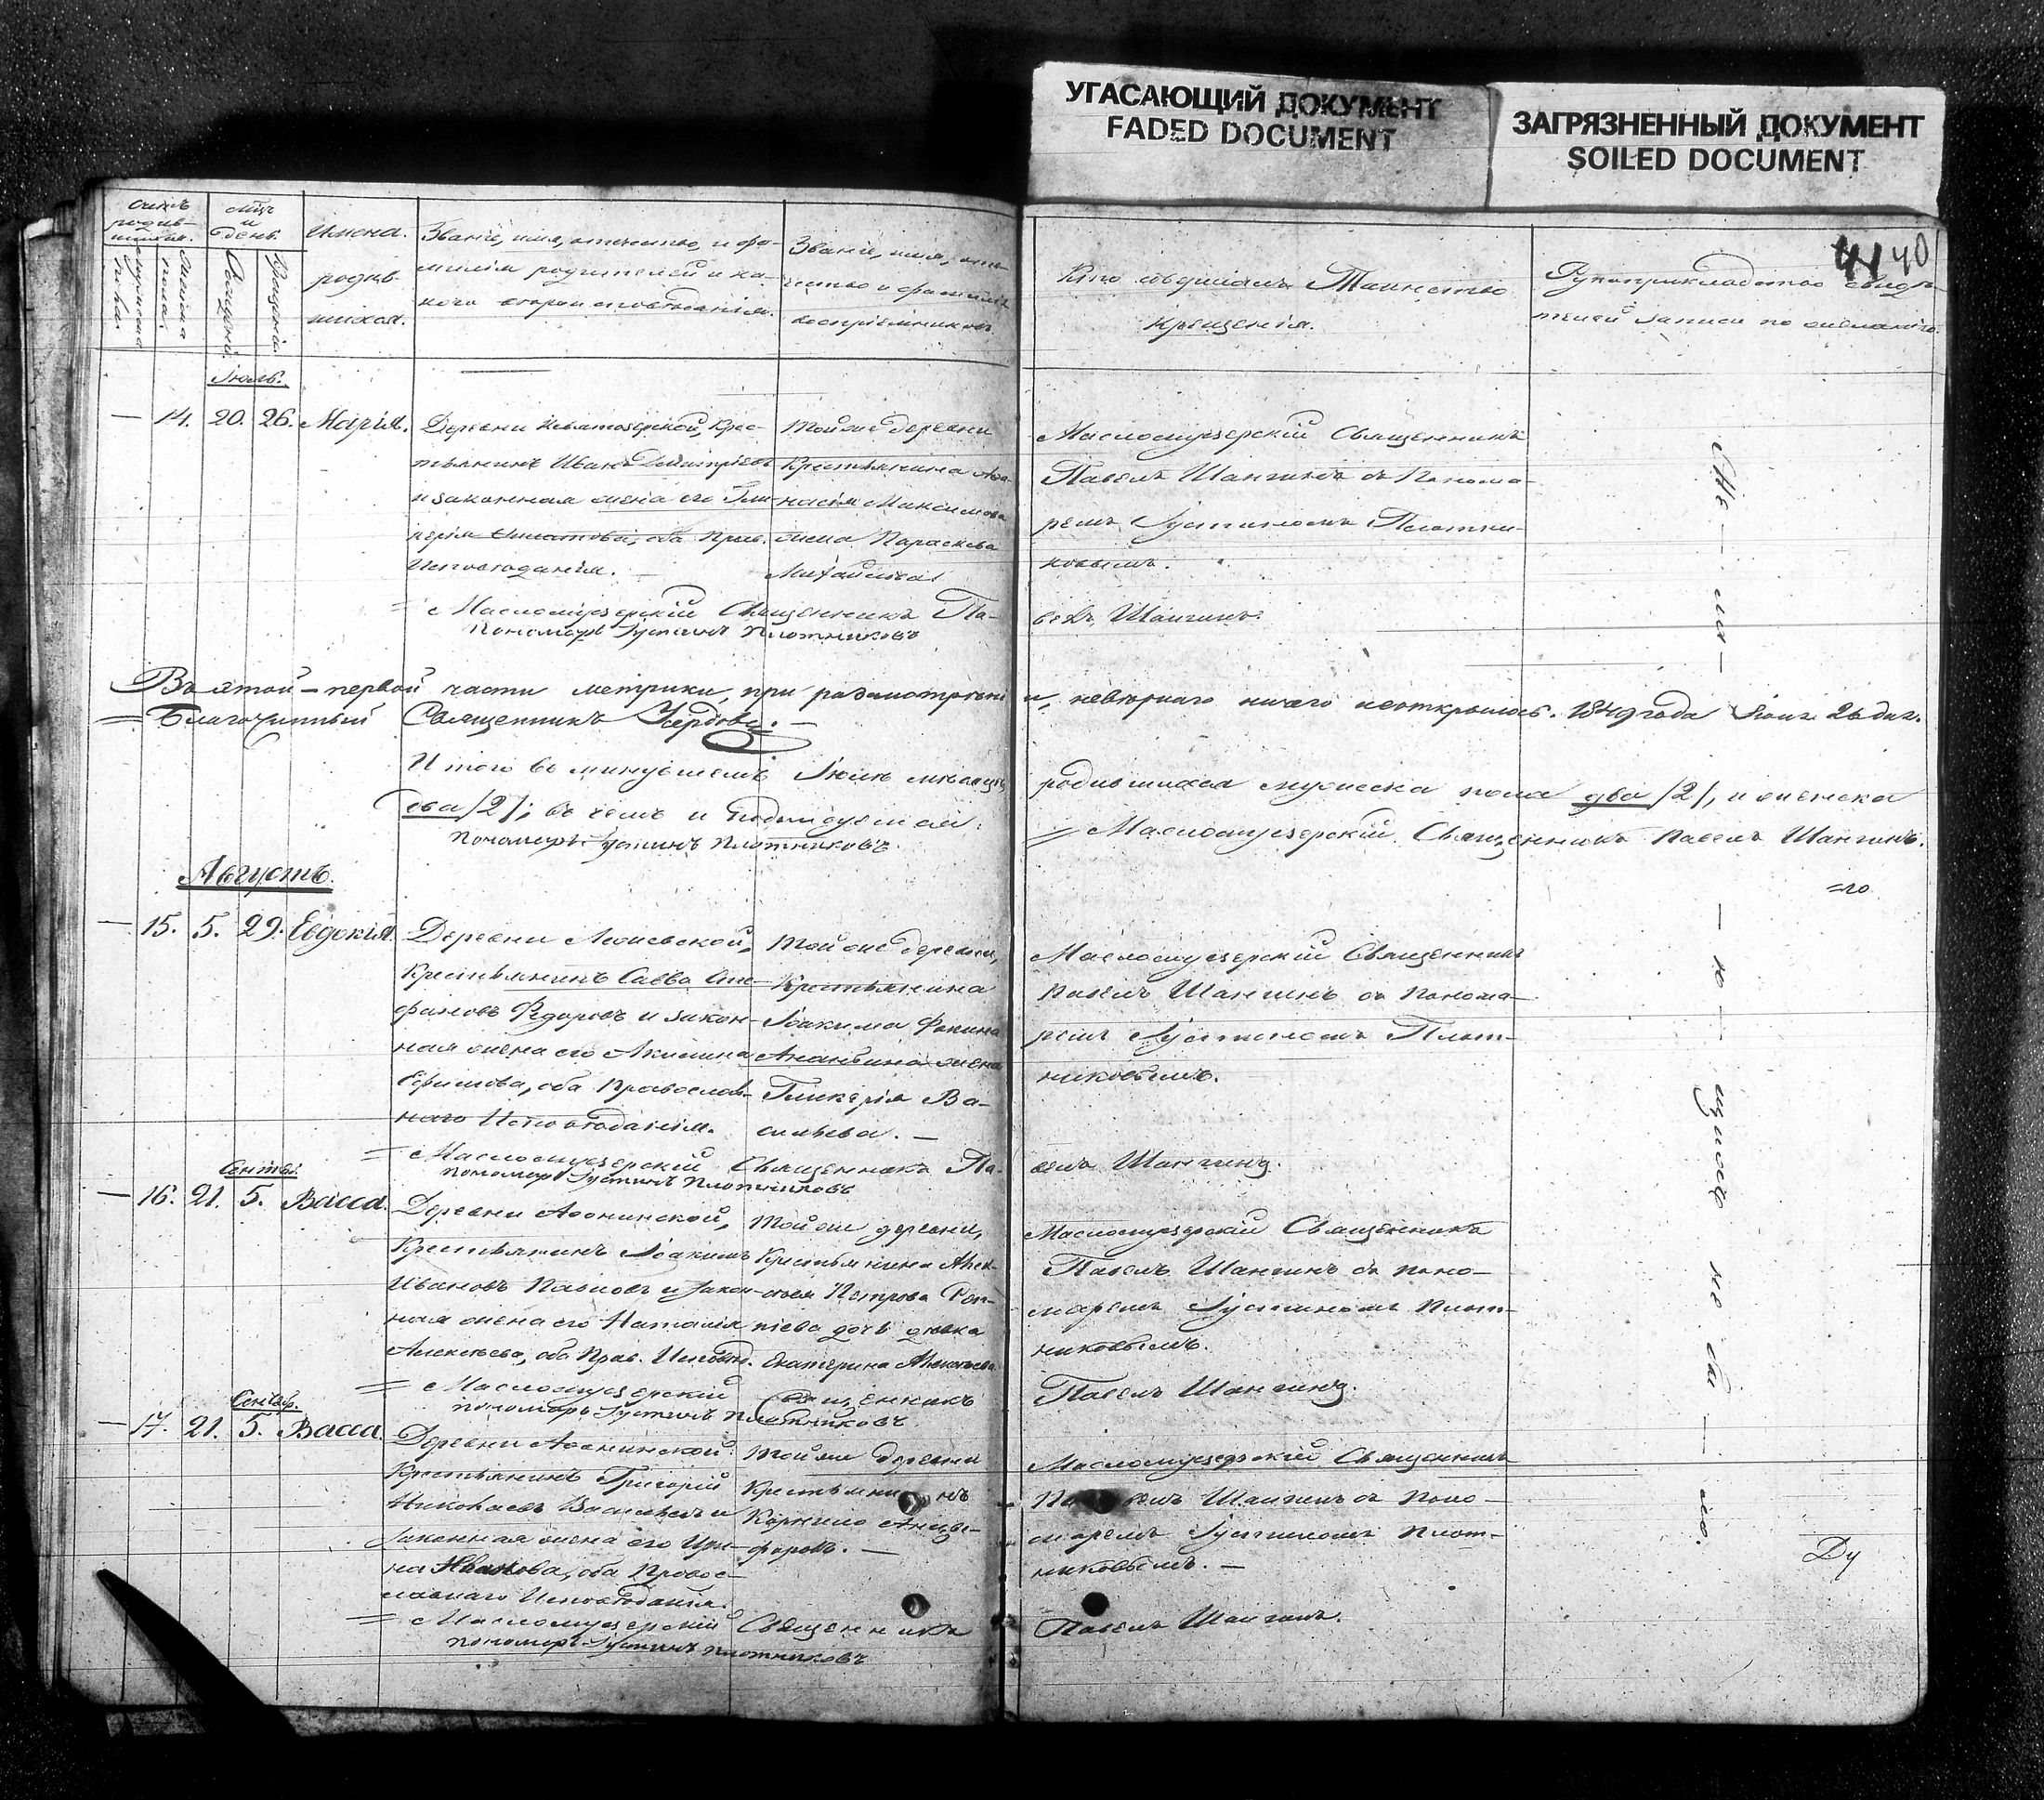 УГАСАЮЩИЙ ДОКУМЕНТ
FADED DOCUMENT
ЗАГРЯЗНЕННЫЙ ДОКУМЕНТ
SOILED DOCUMENT
41 40
Счетъ родив-шихся.
Мужеска пола.
Женска пола.
Мѣц. и день.
Рожденія.
Крещенія.
Имена родив-шихся.
Званіе, имя, отчество, и фа-
милія родителей и ка-
кого вѣроисповѣданія.
Званіе, имя, оте-
чество и фамилія
воспріемниковъ.
Кто совершалъ Таинство
Крещенія.
Рукоприкладство свидѣ-
телей записи по желанію.
Іюль.
— 14. 20. 26. Марія.
Деревни крес-
тьянинъ Иванъ Димитріевъ
и законная жена его Гли-
керія оба Прав.
Исповѣданія.
Той же деревни
Крестьянина Афа-
насія Максимова
жена Параскева
Михайлова
Масломузерскій Священникъ
Павелъ Шангинъ съ Понома-
ремъ Іустиномъ Плотни-
ковымъ.
= Масломузерскій Священникъ Па-
велъ Шангинъ.
Пономарь Іустинъ Плотниковъ
Въ этой-первой части метрики, при разсмотрѣніи, невѣрнаго ничего неоткрылось. 1849 года 26 дня.
= Благочинный Священникъ
Итого въ минувшемъ Іюлѣ мѣсяцѣ, родившихся мужеска пола два /2/, и женска
два /2/; въ чемъ и подписуемся:
= Масломузерскій Священникъ Павелъ Шангинъ.
Пономарь Іустинъ Плотниковъ.
=го
Августъ.
— 15. 5. 29. Евдокія.
Деревни
Крестьянинъ Савва Сте-
фановъ Ѳедоровъ и закон-
ная жена его Акилина
Ефимова, оба Православ-
наго Исповѣданія.
Той же деревни,
Крестьянина
Іоакима Фокина
Ананьина жена
Гликерія Ва-
сильева. —
Масломузерскій Священникъ
Павелъ Шангинъ съ Понома-
ремъ Іустиномъ Плот-
никовымъ.
= Масломузерскій Священникъ Па-
велъ Шангинъ.
Пономарь Іустинъ Плотниковъ
Сентяб.
— 16. 21. 5. Васса.
Деревни Аѳонинской,
Крестьянинъ Іоакимъ
Ивановъ Павловъ и закон-
ная жена его Наталія
Алексѣева, оба Прав. Исповѣд.
Той же деревни,
Крестьянина Алек-
сѣя Петрова
дочь дѣвка
Екатерина Алексѣева
Масломузерскій Священникъ
Павелъ Шангинъ съ Поно-
маремъ Іустиномъ Плот-
никовымъ.
= Масломузерскій Священникъ
Павелъ Шангинъ.
Пономарь Іустинъ Плотниковъ
Сентяб.
— 17. 21. 5. Васса.
Деревни Аѳонинской
Крестьянинъ Григорій
Николаевъ Васильевъ и
законная жена его Ири-
на Иванова, оба Правос-
лавнаго Исповѣданія.
Той же деревни
Крестьянинъ
Корнило Анци-
форовъ. —
Масломузерскій Священникъ
Павелъ Шангинъ съ Поно-
маремъ Іустиномъ Плот-
никовымъ. —
= Масломузерскій Священникъ
Павелъ Шангинъ.
Пономарь Іустинъ Плотниковъ
Же — ла — ю — щихъ не бы — ло.
Ду